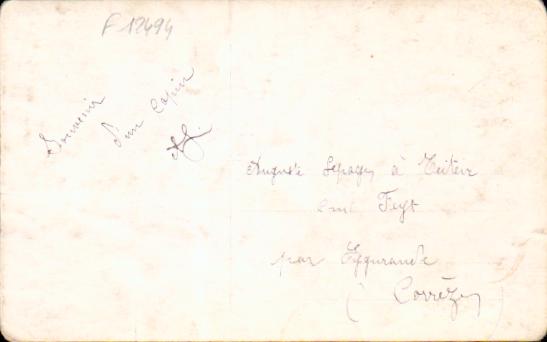 F 12494
Souvenir
d'un Copin
AL
Auguste Lepage à
Feyt
par Eygurande
(Corrèze)